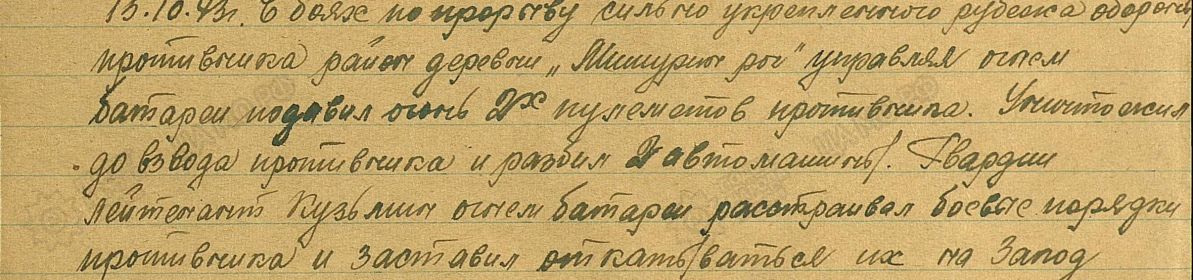 15.10.43г. в боях по прорыву сильно укрепленного рубежа обороны
противника район деревни „Мишурин рог" управляя огнем
батареи подавил огонь 2х пулеметов противника. Уничтожил
до взвода противника и разбил 2 автомашины. Гвардии
лейтенант Кузьмин огнем батареи расстраивал боевые порядки
противника и заставил откатываться их на Запад